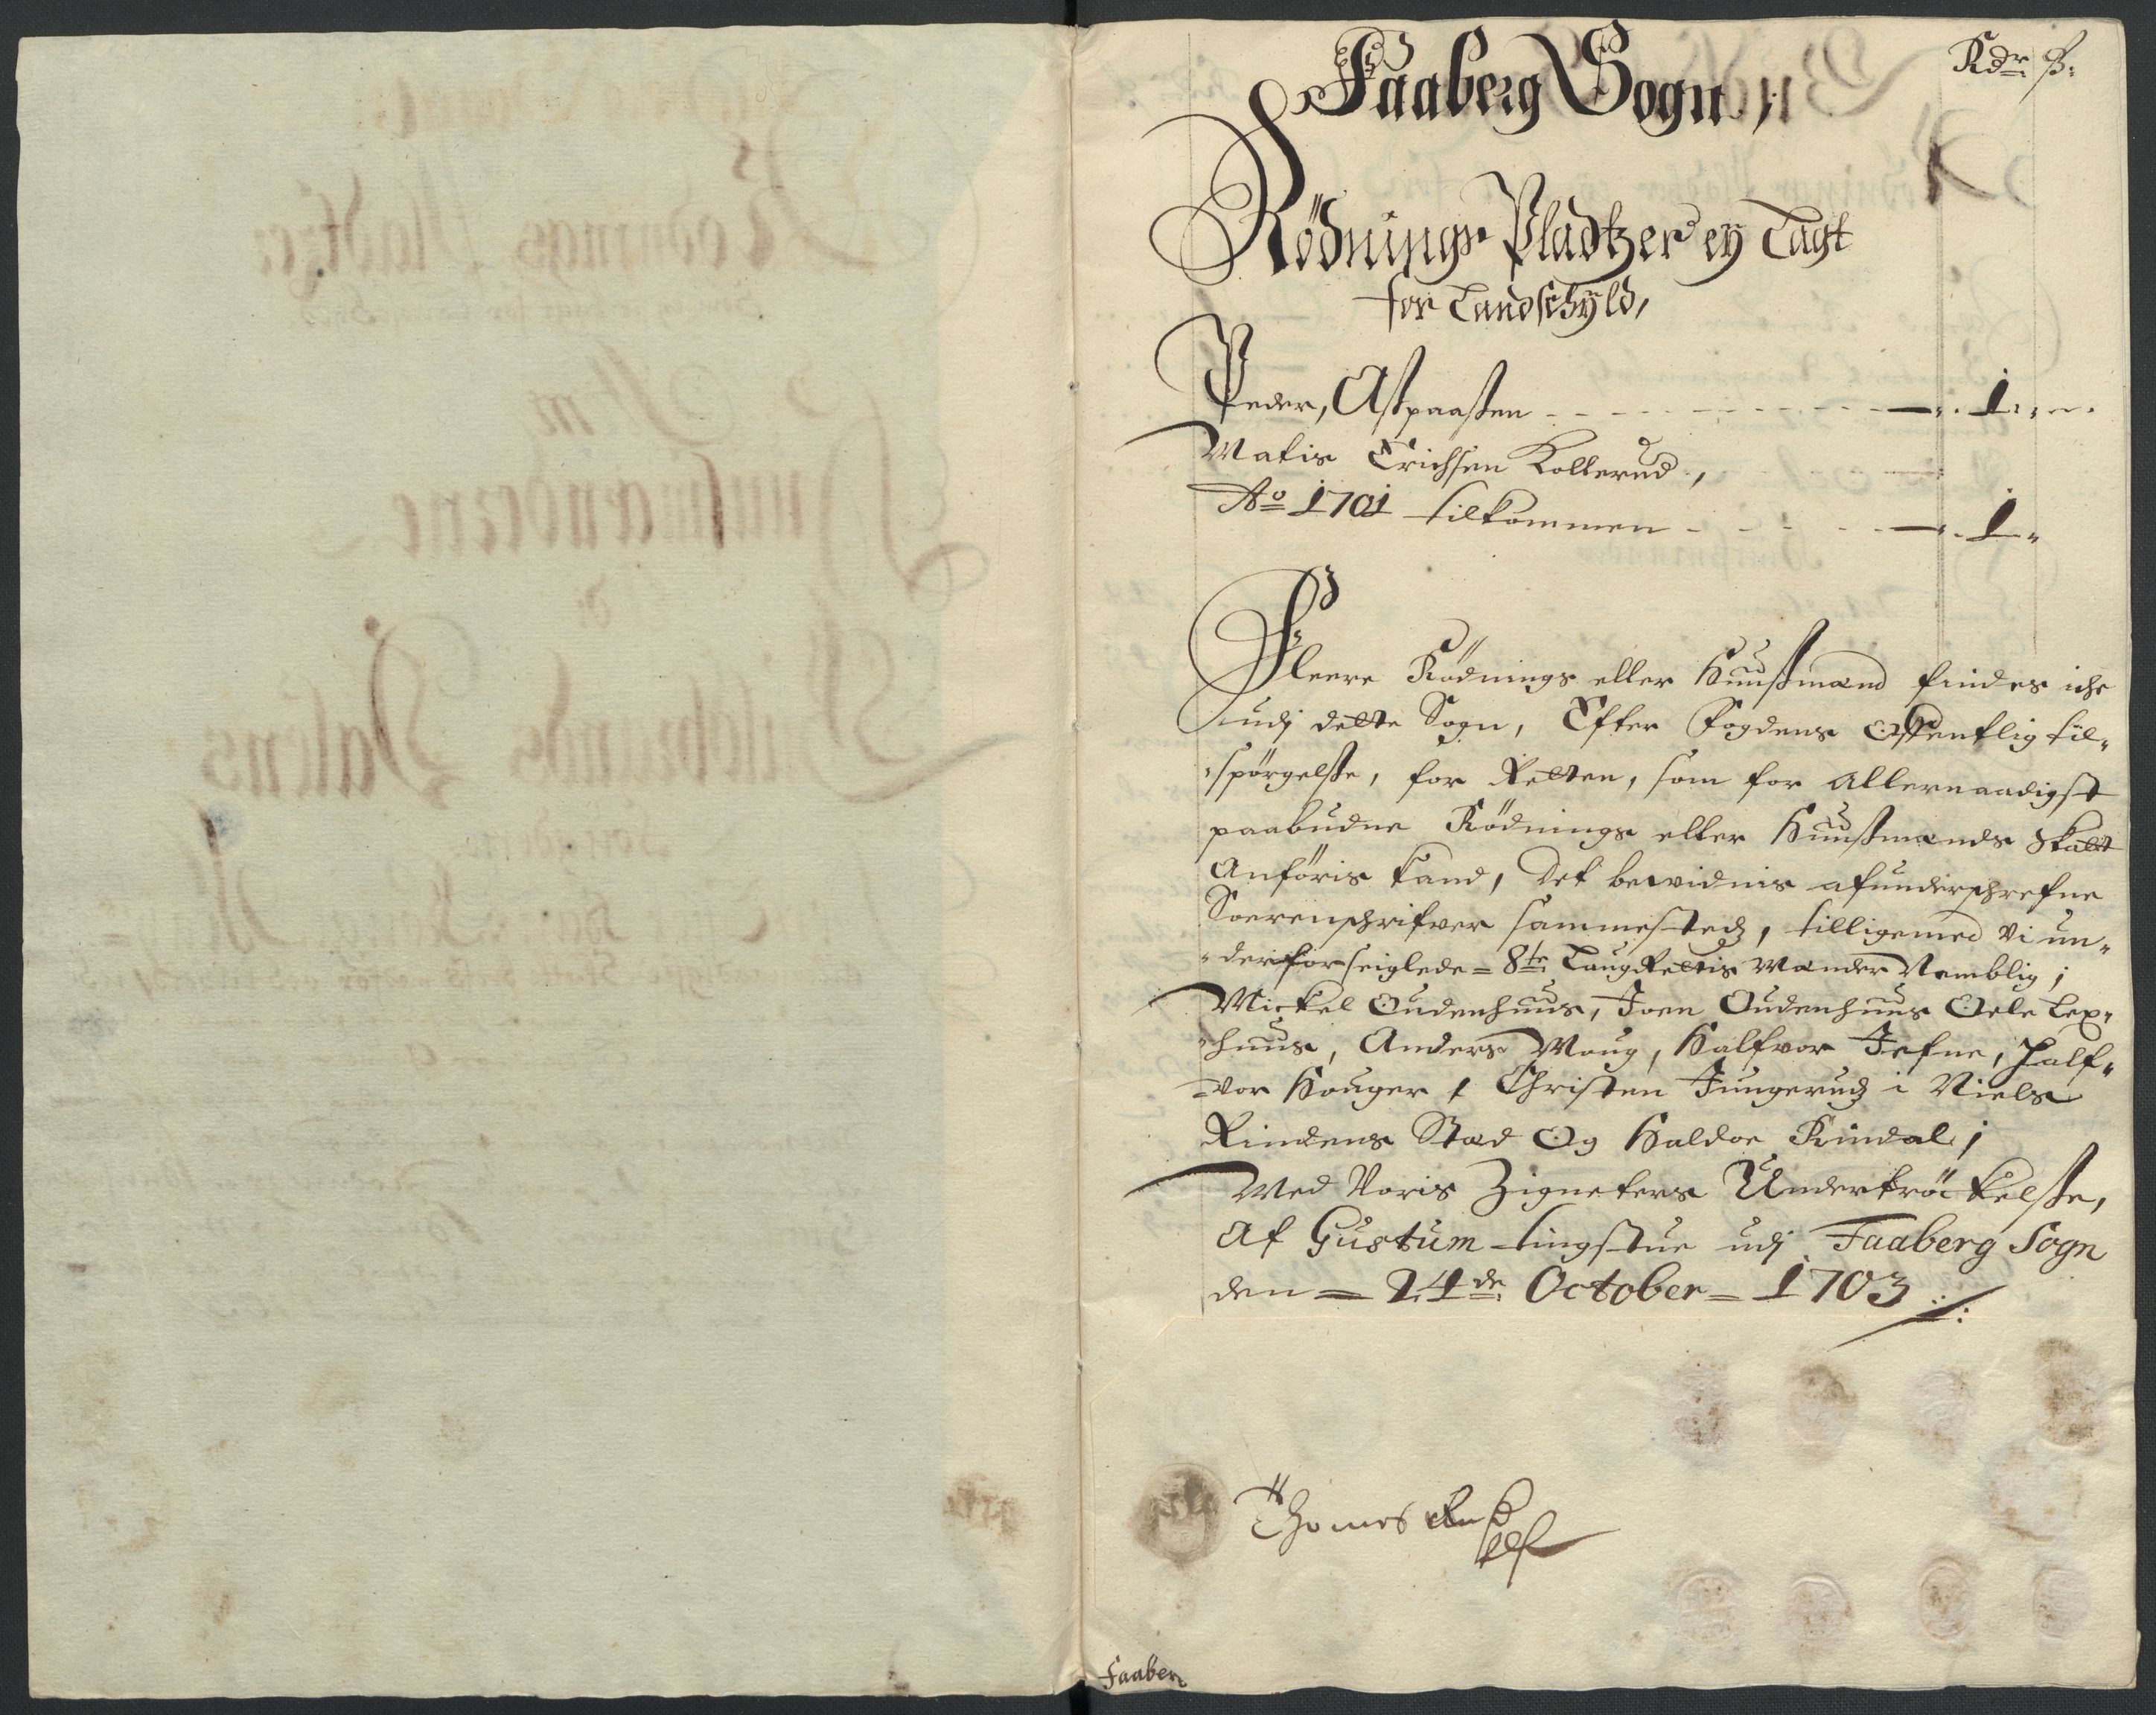 Rdr ß:
Faaberg Sogn
Rödnings Pladtzer ey Lagt
for Landschyld,
Peder, Aspaasten - - - 1
Matis Erichsen Kollerud,
Ao 1701 tilkommen - - - 1
Fleere Rödnings eller Huusmænd findes iche
udj dette Sogn, Efter Fogdens Offentlig til-
spörgelse, for Retten, som for allernaadigst
paabudne Rödnings eller Huusmænds Skatt
Anföris kand, Det bewidnis af underschrefne
Soerenschrifver sammesteds, tilligemed Vi un-
derforseiglede = 8te LaugRettis Mænder Nemblig;
Mickel Oudenhuus, Joen Oudenhuus Oele Lex-
huus, Anders Woug, Halfvor Jefne, Half-
vor Houger, Christen Jungerud; Niels
Rindens Stad Og Haldor Rindal;
Med Voris Zigneters Undertröckelse,
Af Gustum tingstue udj Faaberg Sogn
den = 24de October = 1703
Thomes
Faaber